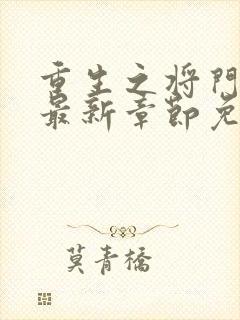 重生之将門
最新章節免
莫青橋